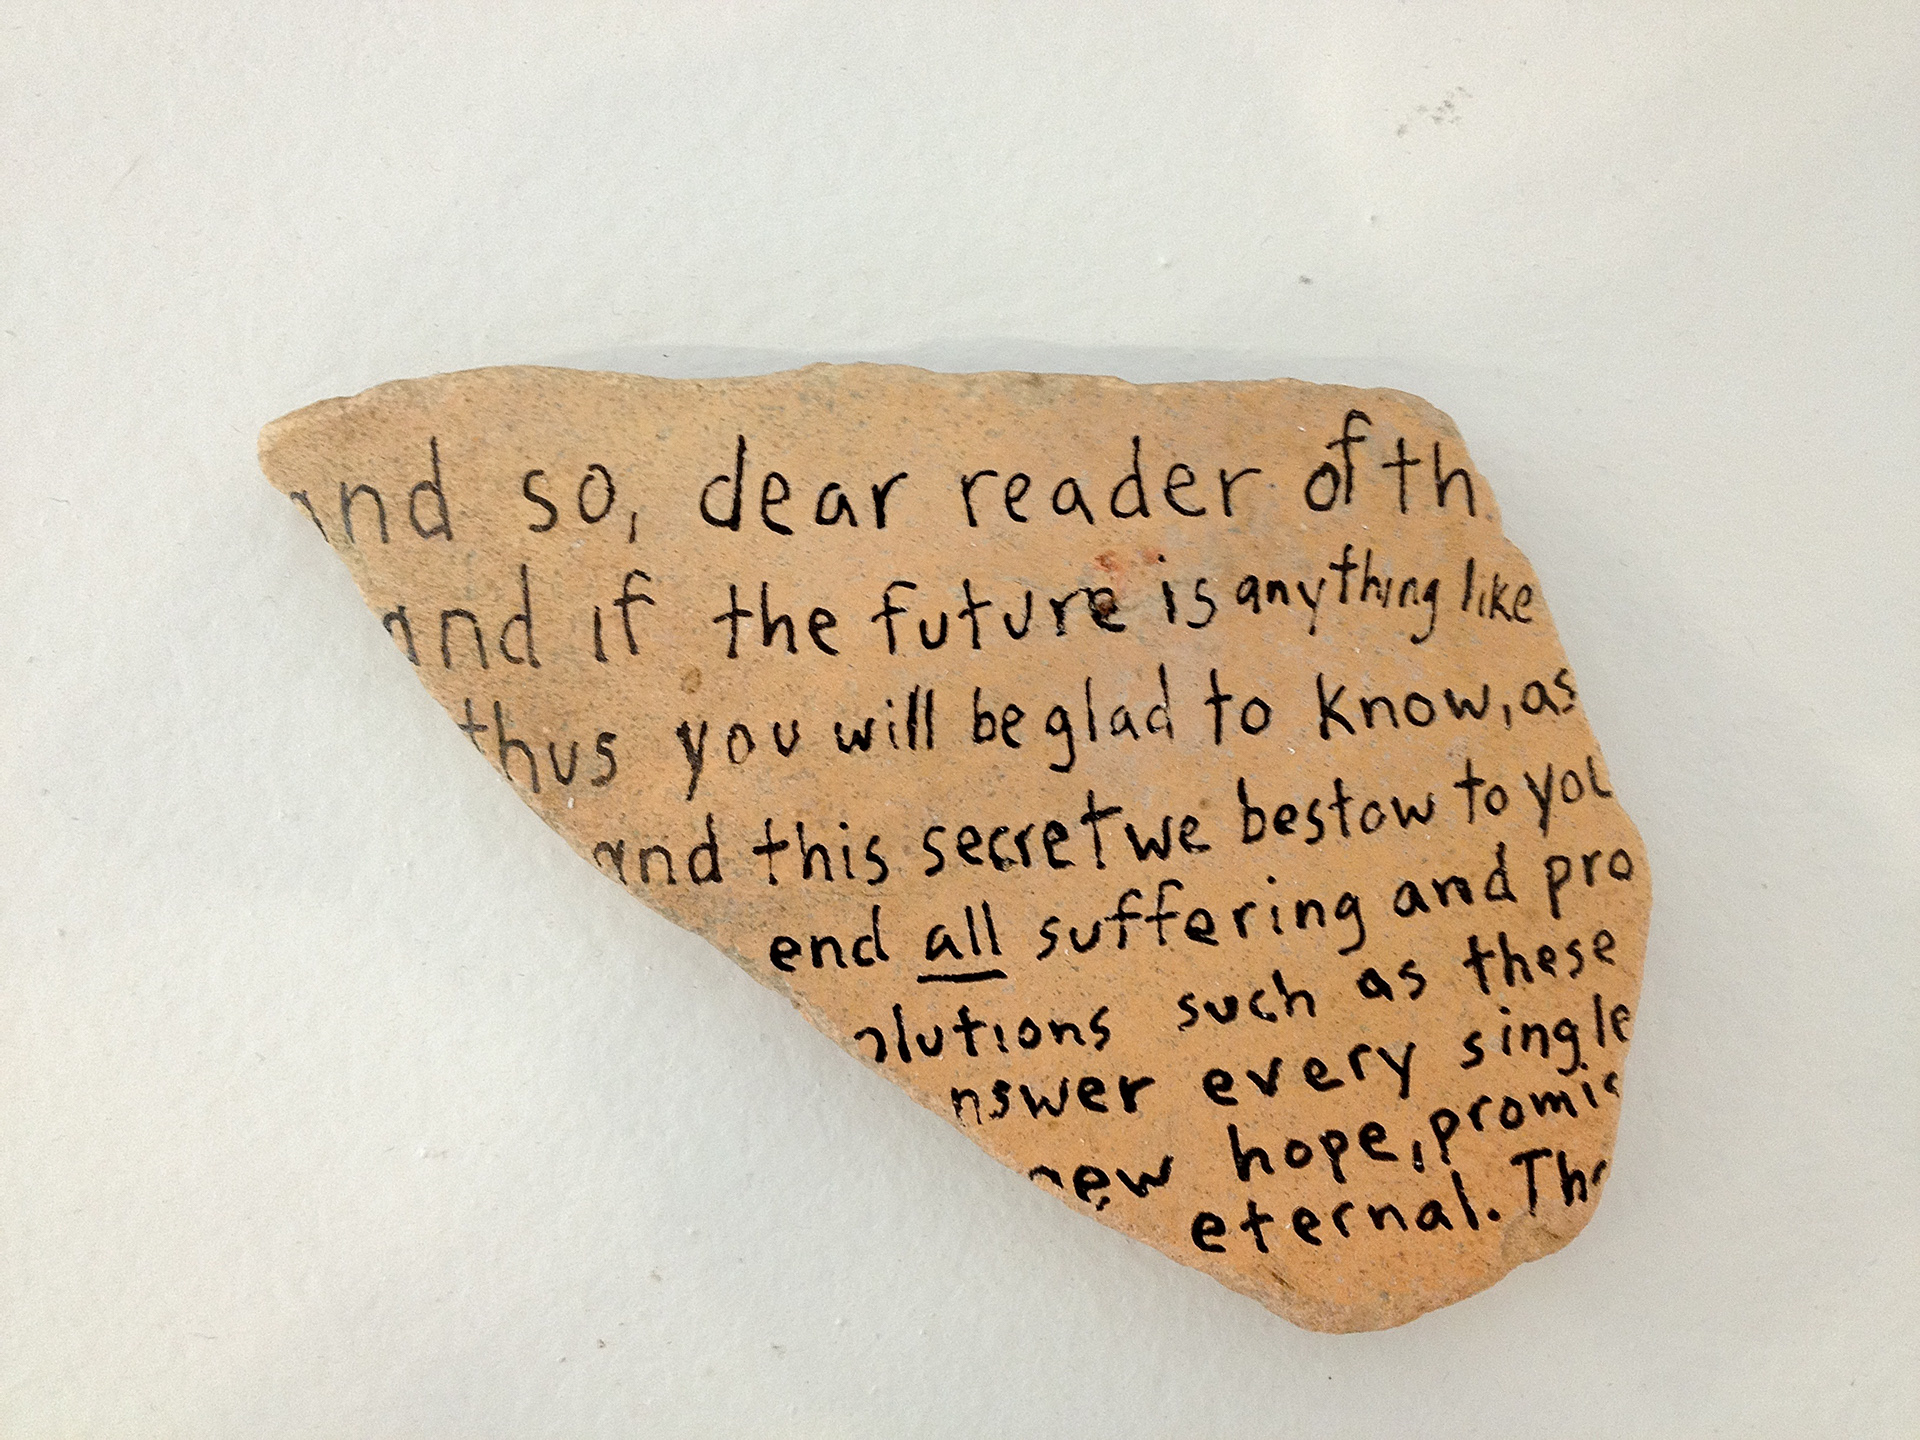 and so, dear reader of th
and if the future is anything like
thus you will be glad to know, as
and this secret we bestow to you
end all suffering and pro
olutions such as these
nswer every single
new hope, promis
eternal. Th